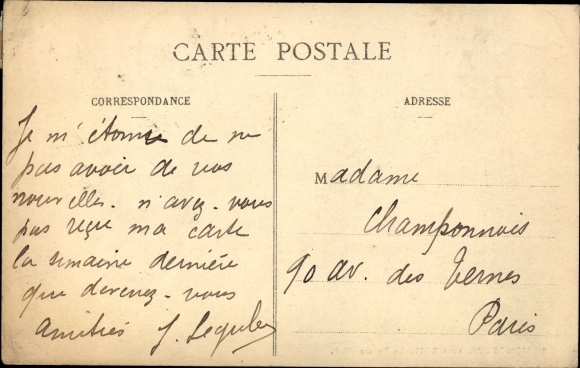 CARTE POSTALE
CORRESPONDANCE
Je m'étonne de ne
pas avoir de vos
nouvelles. n'avez-vous
pas reçu ma carte
la semaine dernière
que devenez-vous
Amitiés J.
ADRESSE
Madame
Champonnois
90 av. des Ternes
Paris